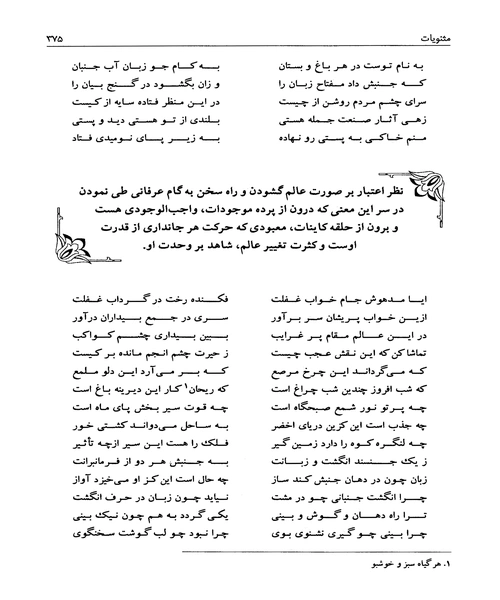 مثنویات ۳۷۵
به نام توست در هر باغ و بستان به کام جو زبان آب جنبان
که جنبش داد مفتاح زبان را و زان بگشود در گنج بیان را
سرای چشم مردم روشن از چیست در این منظر فتاده سایه از کیست
زهی آثار صنعت جمله هستی بلندی از تو هستی دید و پستی
منم خاکی به پستی رو نهاده به زیر پای نومیدی فتاد
نظر اعتبار بر صورت عالم گشودن و راه سخن به گام عرفانی طی نمودن
در سر این معنی که درون از پرده موجودات، واجب‌الوجودی هست
و برون از حلقه کاینات، معبودی که حرکت هر جانداری از قدرت
اوست و کثرت تغییر عالم، شاهد بر وحدت او.
ایا مدهوش جام خواب غفلت فکنده رخت در گرداب غفلت
ازین خواب پریشان سر برآور سری در جمع بیداران درآور
در این عالم مقام پر غرایب ببین بیداری چشم کواکب
تماشا کن که این نقش عجب چیست ز حیرت چشم انجم مانده بر کیست
که می‌گرداند این چرخ مرصع که بر می‌آرد این دلو ملمع
که شب افروز چندین شب چراغ است که ریحان۱ کار این دیرینه باغ است
چه پرتو نور شمع صبحگاه است چه قوت سیر بخش پای ماه است
چه جذب است این کزین دریای اخضر به ساحل می‌دواند کشتی خور
چه لنگره کوه را دارد زمین گیر فلک را هست این سیر ازچه تأثیر
ز یک جنسند انگشت و زبانت به جنبش هر دو از فرمانبرانت
زبان چون در دهان جنبش کند ساز چه حال است این کز او می‌خیزد آواز
چرا انگشت جنبانی چو در مشت نیاید چون زبان در حرف انگشت
ترا راه دهان و گوش و بینی یکی گردد به هم چون نیک بینی
چرا بینی چو گیری نشنوی بوی چرا نبود چو لب گوشت سخنگوی
۱. هر گیاه سبز و خوشبو